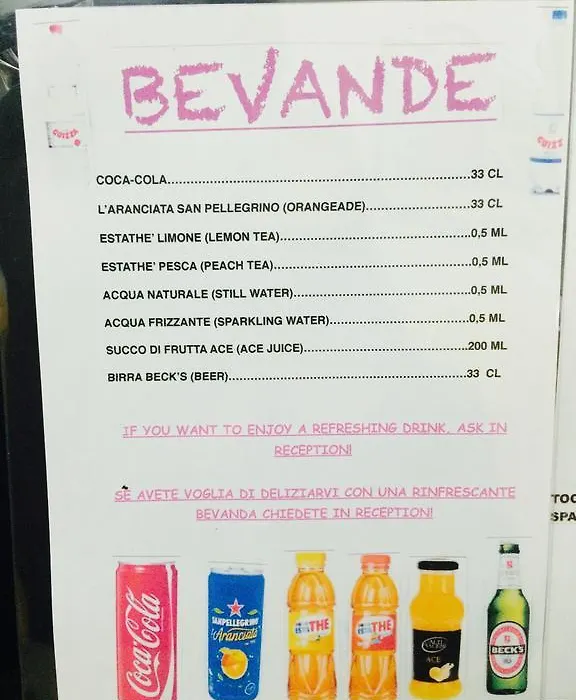 BEVANDE
COCA-COLA.....33 CL
L'ARANCIATA SAN PELLEGRINO (ORANGEADE).....33 CL
ESTATHE' LIMONE (LEMON TEA).....0,5 ML
ESTATHE' PESCA (PEACH TEA).....0,5 ML
ACQUA NATURALE (STILL WATER).....0,5 ML
ACQUA FRIZZANTE (SPARKLING WATER).....0,5 ML
SUCCO DI FRUTTA ACE (ACE JUICE).....200 ML
BIRRA BECK'S (BEER).....33 CL
IF YOU WANT TO ENJOY A REFRESHING DRINK, ASK IN
RECEPTION!
SE AVETE VOGLIA DI DELIZIARVI CON UNA RINFRESCANTE
BEVANDA CHIEDETE IN RECEPTION!
Coca-Cola
SANPELLEGRINO
Aranciata
THE
THE
ACE
BECK'S